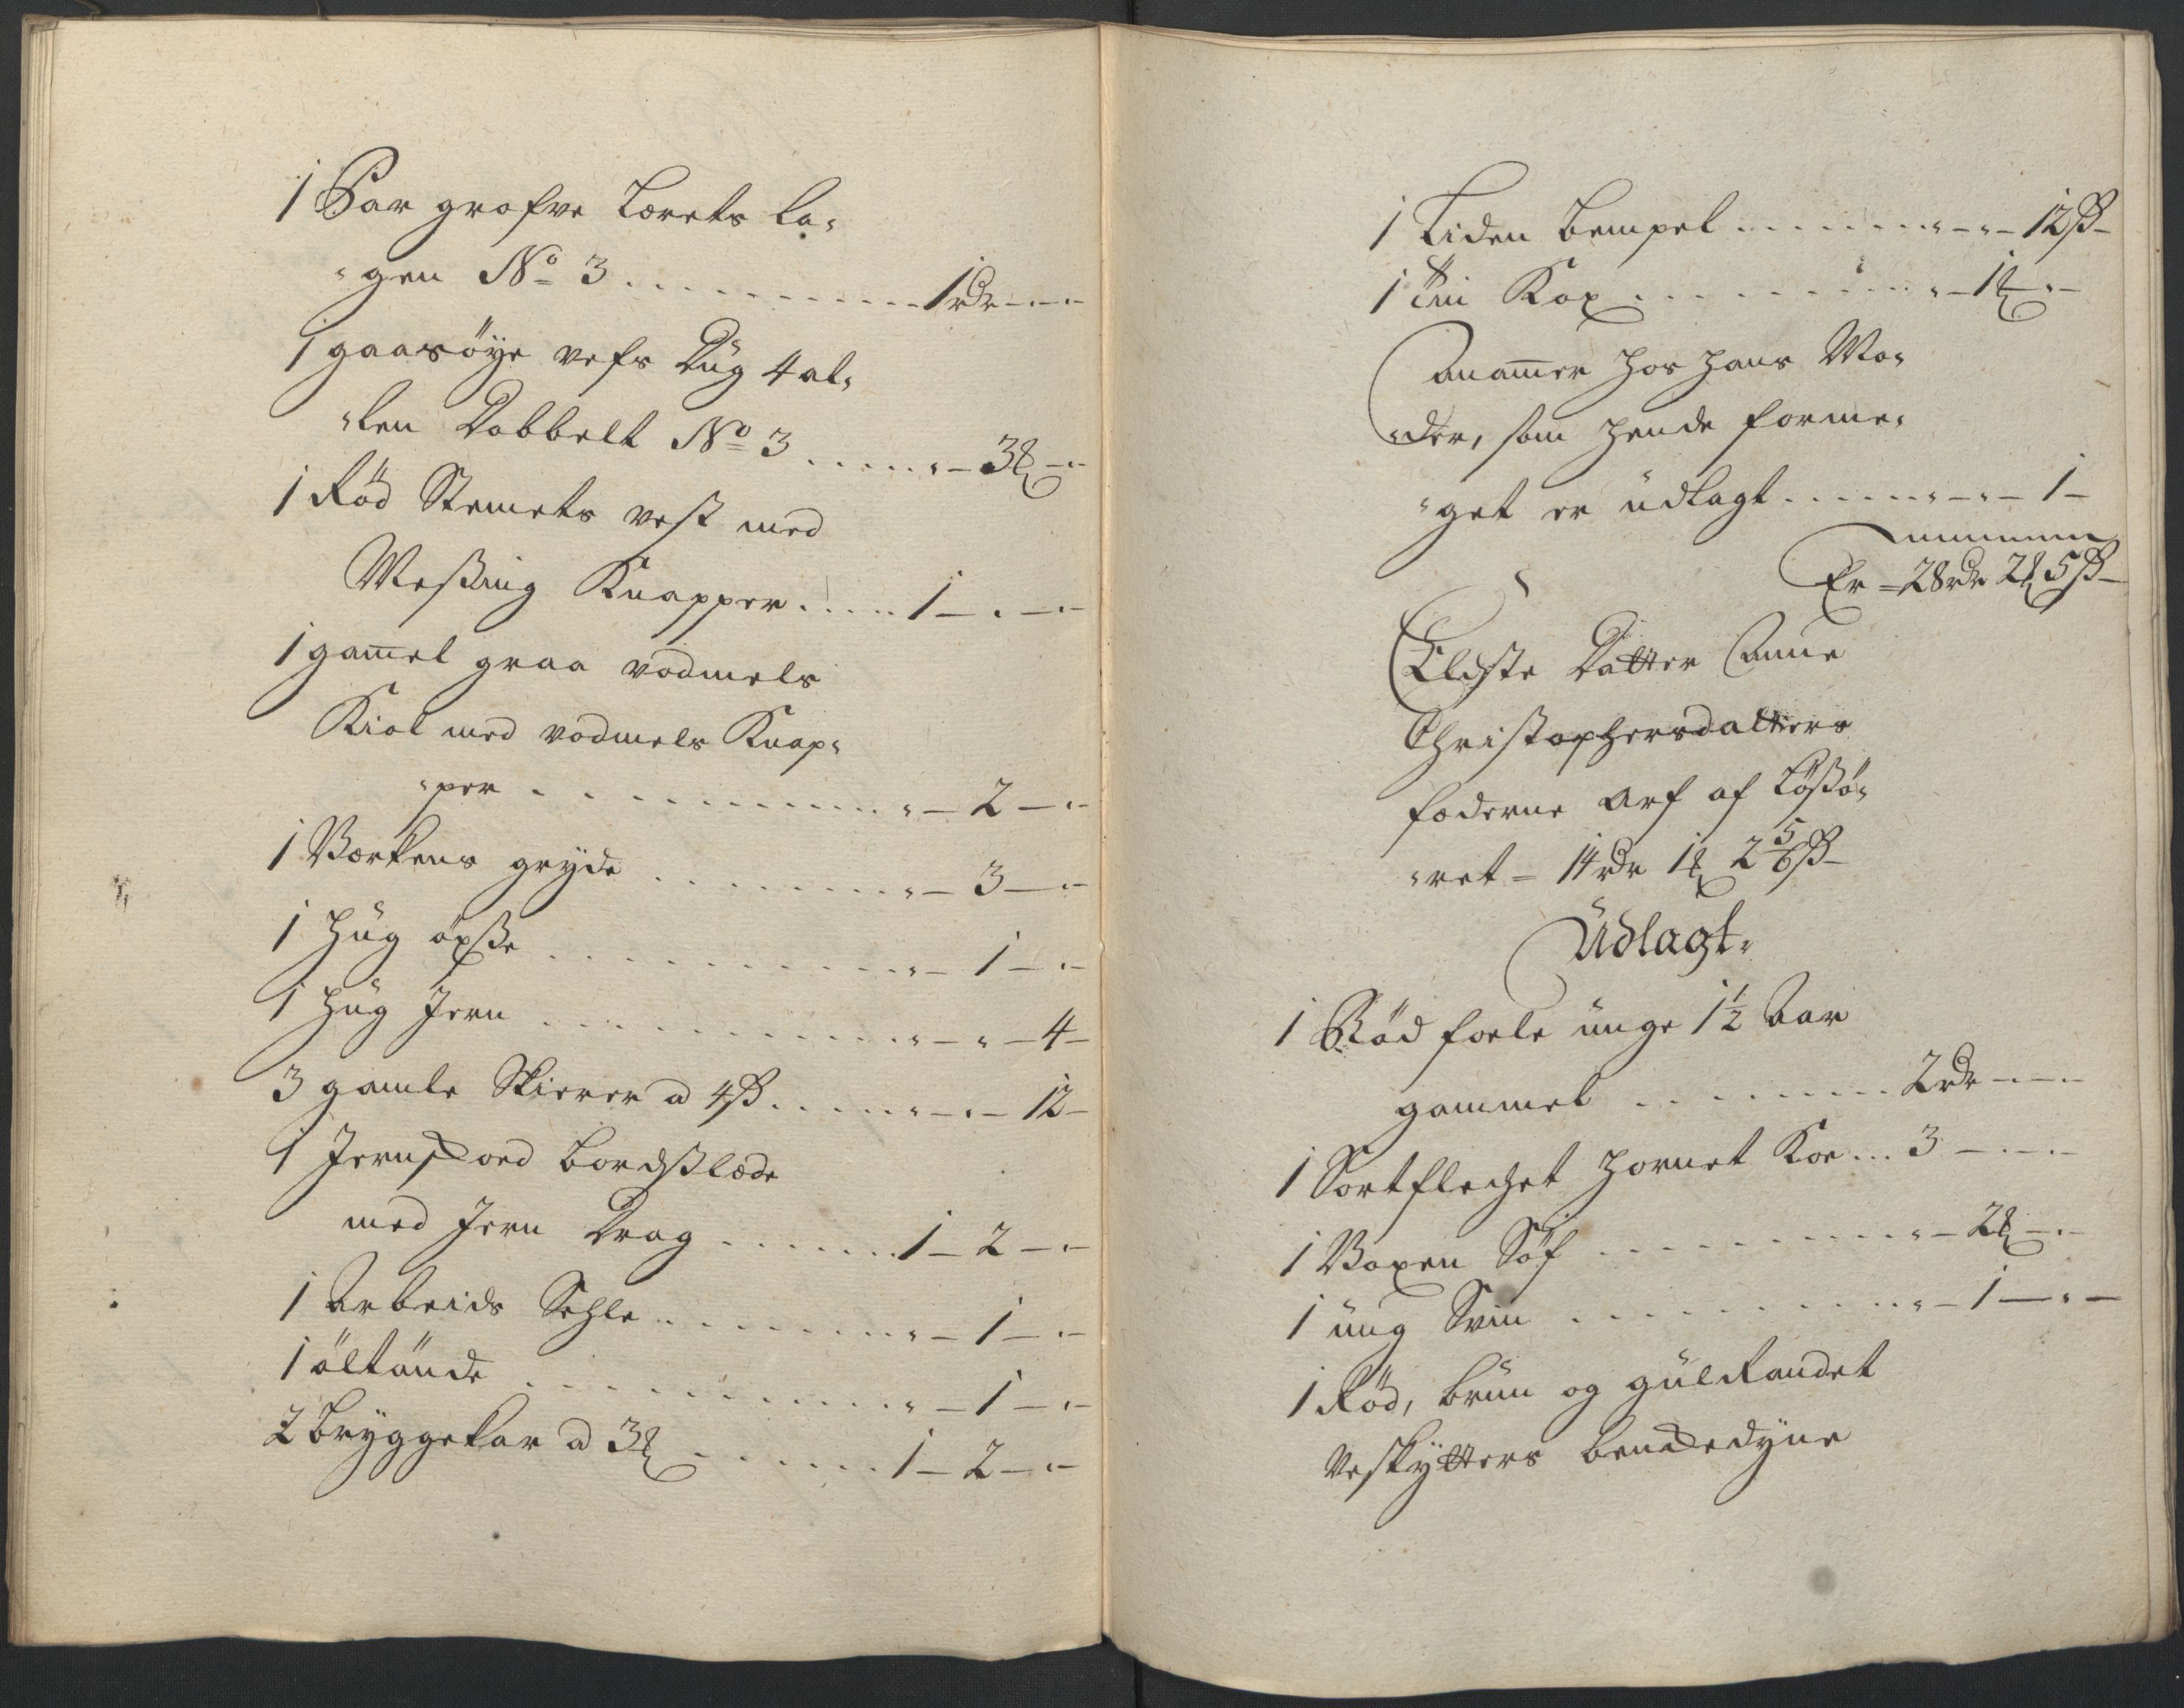 1 Par grofve Lærets la-
-gen No 3 . . . . . . . . . . . 1 rdr - " -
1 gaasøye vefs Dug 4 al-
-len Dobbelt No 3 . . . . . " - 3 ß - " -
1 Rød Stemets vest med
Messing Knapper . . . . . 1 - " - " -
1 gamel graa vadmels
Kiol med vadmels Knap-
-per . . . . . . . . . . . " - 2 - " -
1 Værkens gryde . . . . . . . . . " - 3 - " -
1 hug øxse . . . . . . . . . . . " - 1 - " -
1 hug Jern . . . . . . . . . . . " - " - 4 -
3 gamle Skierer a 4 ß . . . . . " - " - 12 -
1 Jernskoed bordslæde
med Jern Drag . . . . . . . 1 - 2 - " -
1 Arbeids Sehle . . . . . . . . " - 1 - " -
1 øltønde . . . . . . . . . . . " - 1 - " -
2 bryggekar a 3 . . . . . . . 1 - 2 - " -
1 Liden bempel . . . . . . . " - " - 12 ß -
1 Kop . . . . . . . . . . " - 1 - " -
anamer hos hans Mo-
-der, som hende forme-
-get er udlagt . . . . . . " - " - 1 -
Er = 28 rdr 2 5 ß -
Eldste Datter Anne
Christophersdatters
fæderne Arf af Løsø-
-ret = 14 rdr 1 2 5/6 ß -
Udlagt.
1 Rød foele unge 1 1/2 Aar
gammel . . . . . . . . . 2 rdr - " -
1 Sortflechet hornet Koe . . . 3 - " - " -
1 Voxen Søf . . . . . . . . . . " - 2 - " -
1 ung Svin . . . . . . . . . . " - 1 - " -
1 Rød, brun og gul Randet
Veskytters benchedyne